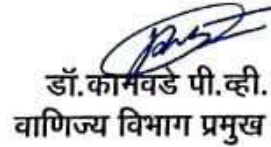 डॉ.कामवडे पी.व्ही.
वाणिज्य विभाग प्रमुख